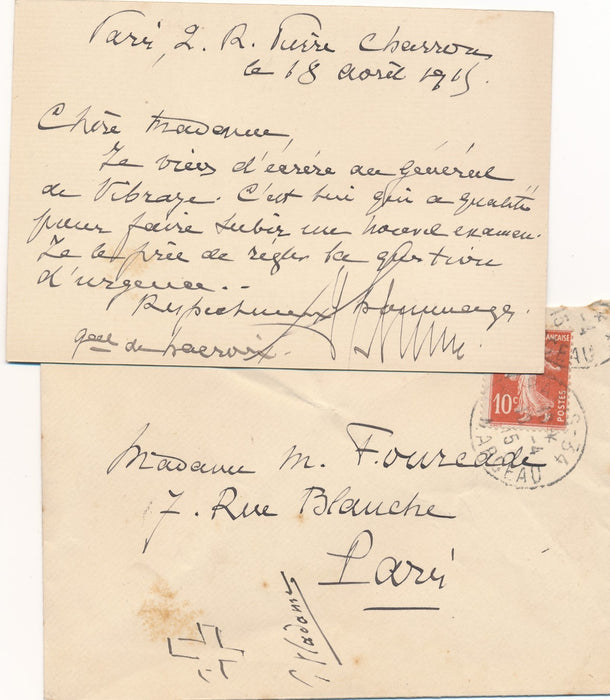 Paris, 2. R. Pierre Charron
le 18 août 1915.
Chère Madame
Je viens d'écrire au Général
de Vibraye. C'est lui qui a qualité
pour faire subir un nouvel examen.
Je le prie de régler la question
d'urgence..
Respectueux hommages.
Gal de Lacroix.
10c
POSTES
Madame M. Fourcade
7. Rue Blanche
Paris
Madame